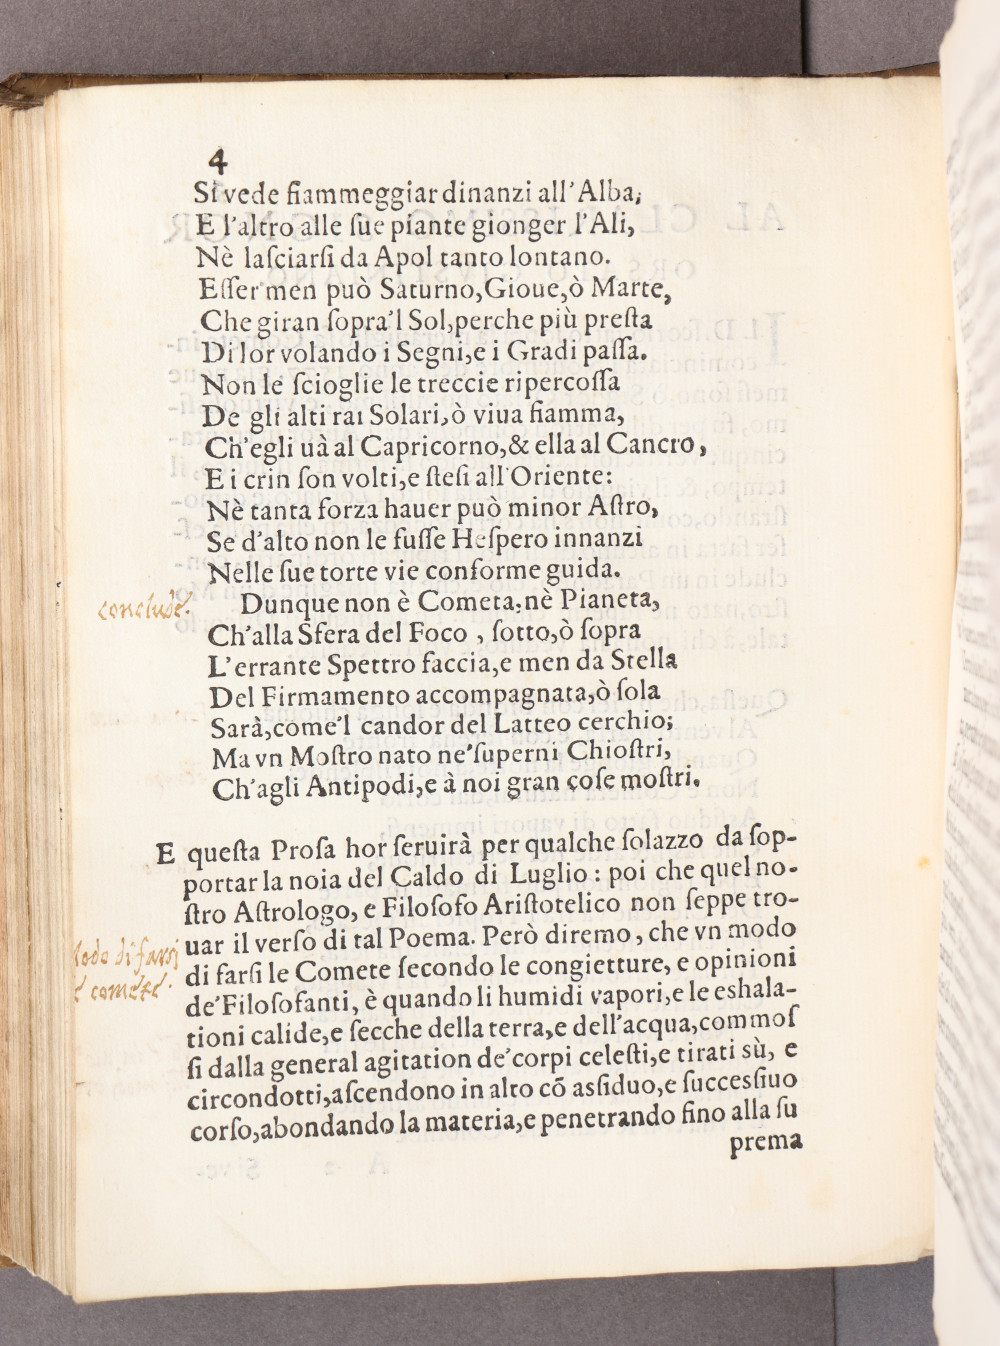 4
Si vede fiammeggiar dinanzi all'Alba,
E l'altro alle ſue piante gionger l'Ali,
Nè laſciarſi da Apol tanto lontano.
Eſſer men può Saturno, Gioue, ò Marte,
Che giran ſopra'l Sol, perche più preſta
Di lor volando i Segni, e i Gradi paſſa.
Non le ſcioglie le treccie ripercoſſa
De gli alti rai Solari, ò viua fiamma,
Ch'egli uà al Capricorno, & ella al Cancro,
E i crin ſon volti, e ſteſi all'Oriente:
Nè tanta forza hauer può minor Aſtro,
Se d'alto non le fuſſe Heſpero innanzi
Nelle ſue torte vie conforme guida.
conclude.
Dunque non è Cometa, nè Pianeta,
Ch'alla Sfera del Foco, ſotto, ò ſopra
L'errante Spettro faccia, e men da Stella
Del Firmamento accompagnata, ò ſola
Sarà, come'l candor del Latteo cerchio;
Ma vn Moſtro nato ne'ſuperni Chioſtri,
Ch'agli Antipodi, e à noi gran coſe moſtri.
E queſta Proſa hor ſeruirà per qualche ſolazzo da ſop-
portar la noia del Caldo di Luglio: poi che quel no-
ſtro Aſtrologo, e Filoſofo Ariſtotelico non ſeppe tro-
uar il verſo di tal Poema. Però diremo, che vn modo
Modo di farsi
di farſi le Comete ſecondo le congietture, e opinioni
le comete.
de'Filoſofanti, è quando li humidi vapori, e le eshala-
tioni calide, e ſecche della terra, e dell'acqua, commoſ
ſi dalla general agitation de'corpi celeſti, e tirati sù, e
circondotti, aſcendono in alto cõ aſsiduo, e ſucceſsiuo
corſo, abondando la materia, e penetrando fino alla ſu
prema